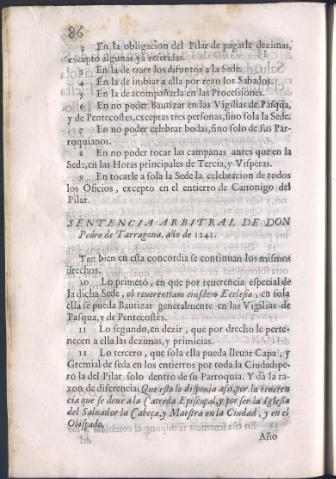 86
2 En la obligacion del Pilar de pagarle dezimas,
excepto algunas ya referidas.
3 En la de traer los difuntos a la Sede.
4 En la de imbiar a ella por rezo los Sabados.
5 En la de acompañarla en las Procesiones.
6 En no poder Bautizar en las Vigilias de Pasqua,
y de Pentecostes, exceptas tres personas, sino sola la Sede.
7 En no poder celebrar bodas, sino solo de sus Par-
roquianos.
8 En no poder tocar las campanas antes que en la
Sede, en las Horas principales de Tercia, y Visperas.
9 En tocarle a sola la Sede la celebracion de todos
los Oficios, excepto en el entierro de Canonigo del
Pilar.
SENTENCIA ARBITRAL DE DON
Pedro de Tarragona, año de 1241.
Tan bien en esta concordia se continuan los mismos
drechos.
10 Lo primero, en que por reuerencia especial de
la dicha Sede, ob reuerentiam eiusdem Ecclesiæ, en sola
ella se pueda Bautizar generalmente en las Vigilias de
Pasqua, y de Pentecostes.
11 Lo segundo, en dezir, que por drecho le perte-
necen a ella las dezimas, y primicias.
12 Lo tercero, que sola ella pueda lleuar Capa, y
Gremial de seda en los entierros por toda la Ciudad, pe-
ro la del Pilar solo dentro de su Parroquia. Y dà la ra-
zon de diferencia: Que esto lo disponia assi por la reueren
cia que se deue a la Catreda Episcopal, y por ser la Iglesia
del Saluador la Cabeça, y Maestra en la Ciudad, y en el
Obispado.
Año